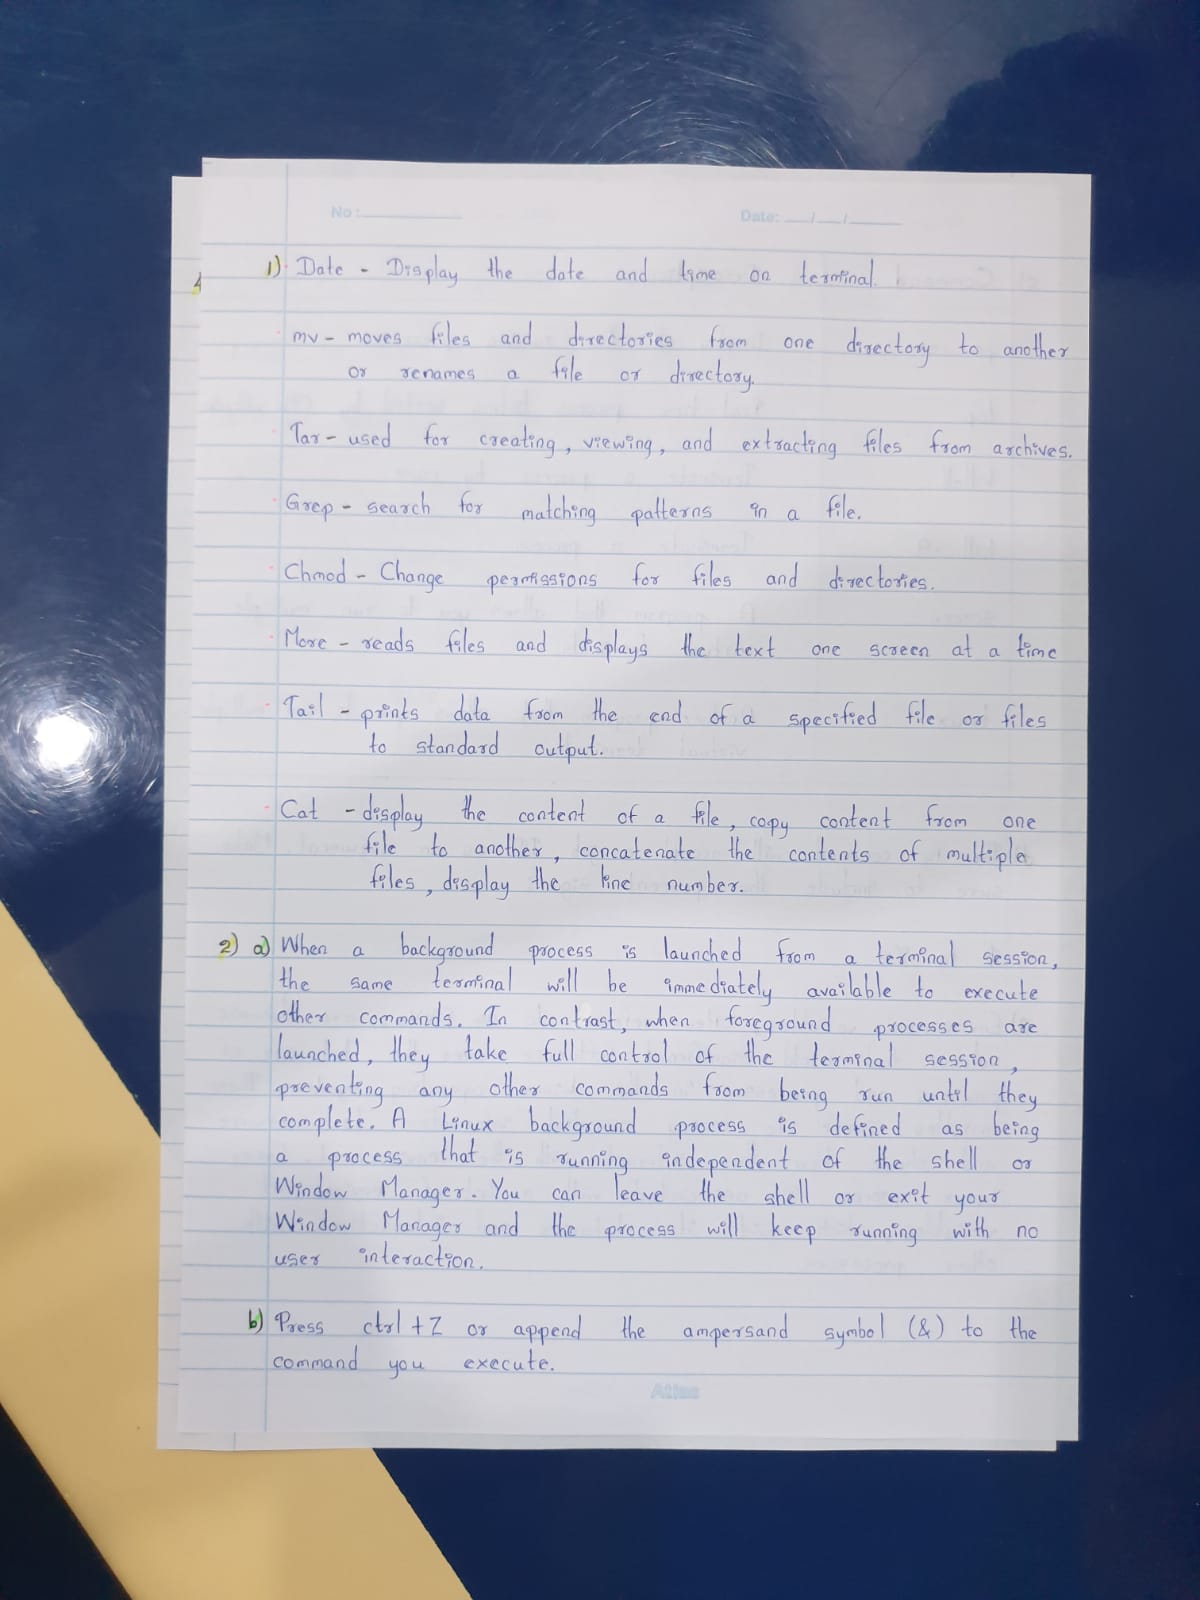 No: Date: __/__/__
1) Date - Display the date and time on terminal.
mv - moves files and directories from one directory to another
or renames a file or directory.
Tar - used for creating, viewing, and extracting files from archives.
Grep - search for matching patterns in a file.
Chmod - Change permissions for files and directories.
More - reads files and displays the text one screen at a time
Tail - prints data from the end of a specified file or files
to standard output.
Cat - display the content of a file, copy content from one
file to another, concatenate the contents of multiple
files, display the line number.
2) a) When a background process is launched from a terminal session,
the same terminal will be immediately available to execute
other commands. In contrast, when foreground processes are
launched, they take full control of the terminal session,
preventing any other commands from being run until they
complete. A Linux background process is defined as being
a process that is running independent of the shell or
Window Manager. You can leave the shell or exit your
Window Manager and the process will keep running with no
user interaction.
b) Press ctrl + Z or append the ampersand symbol (&) to the
command you execute.
Atlas